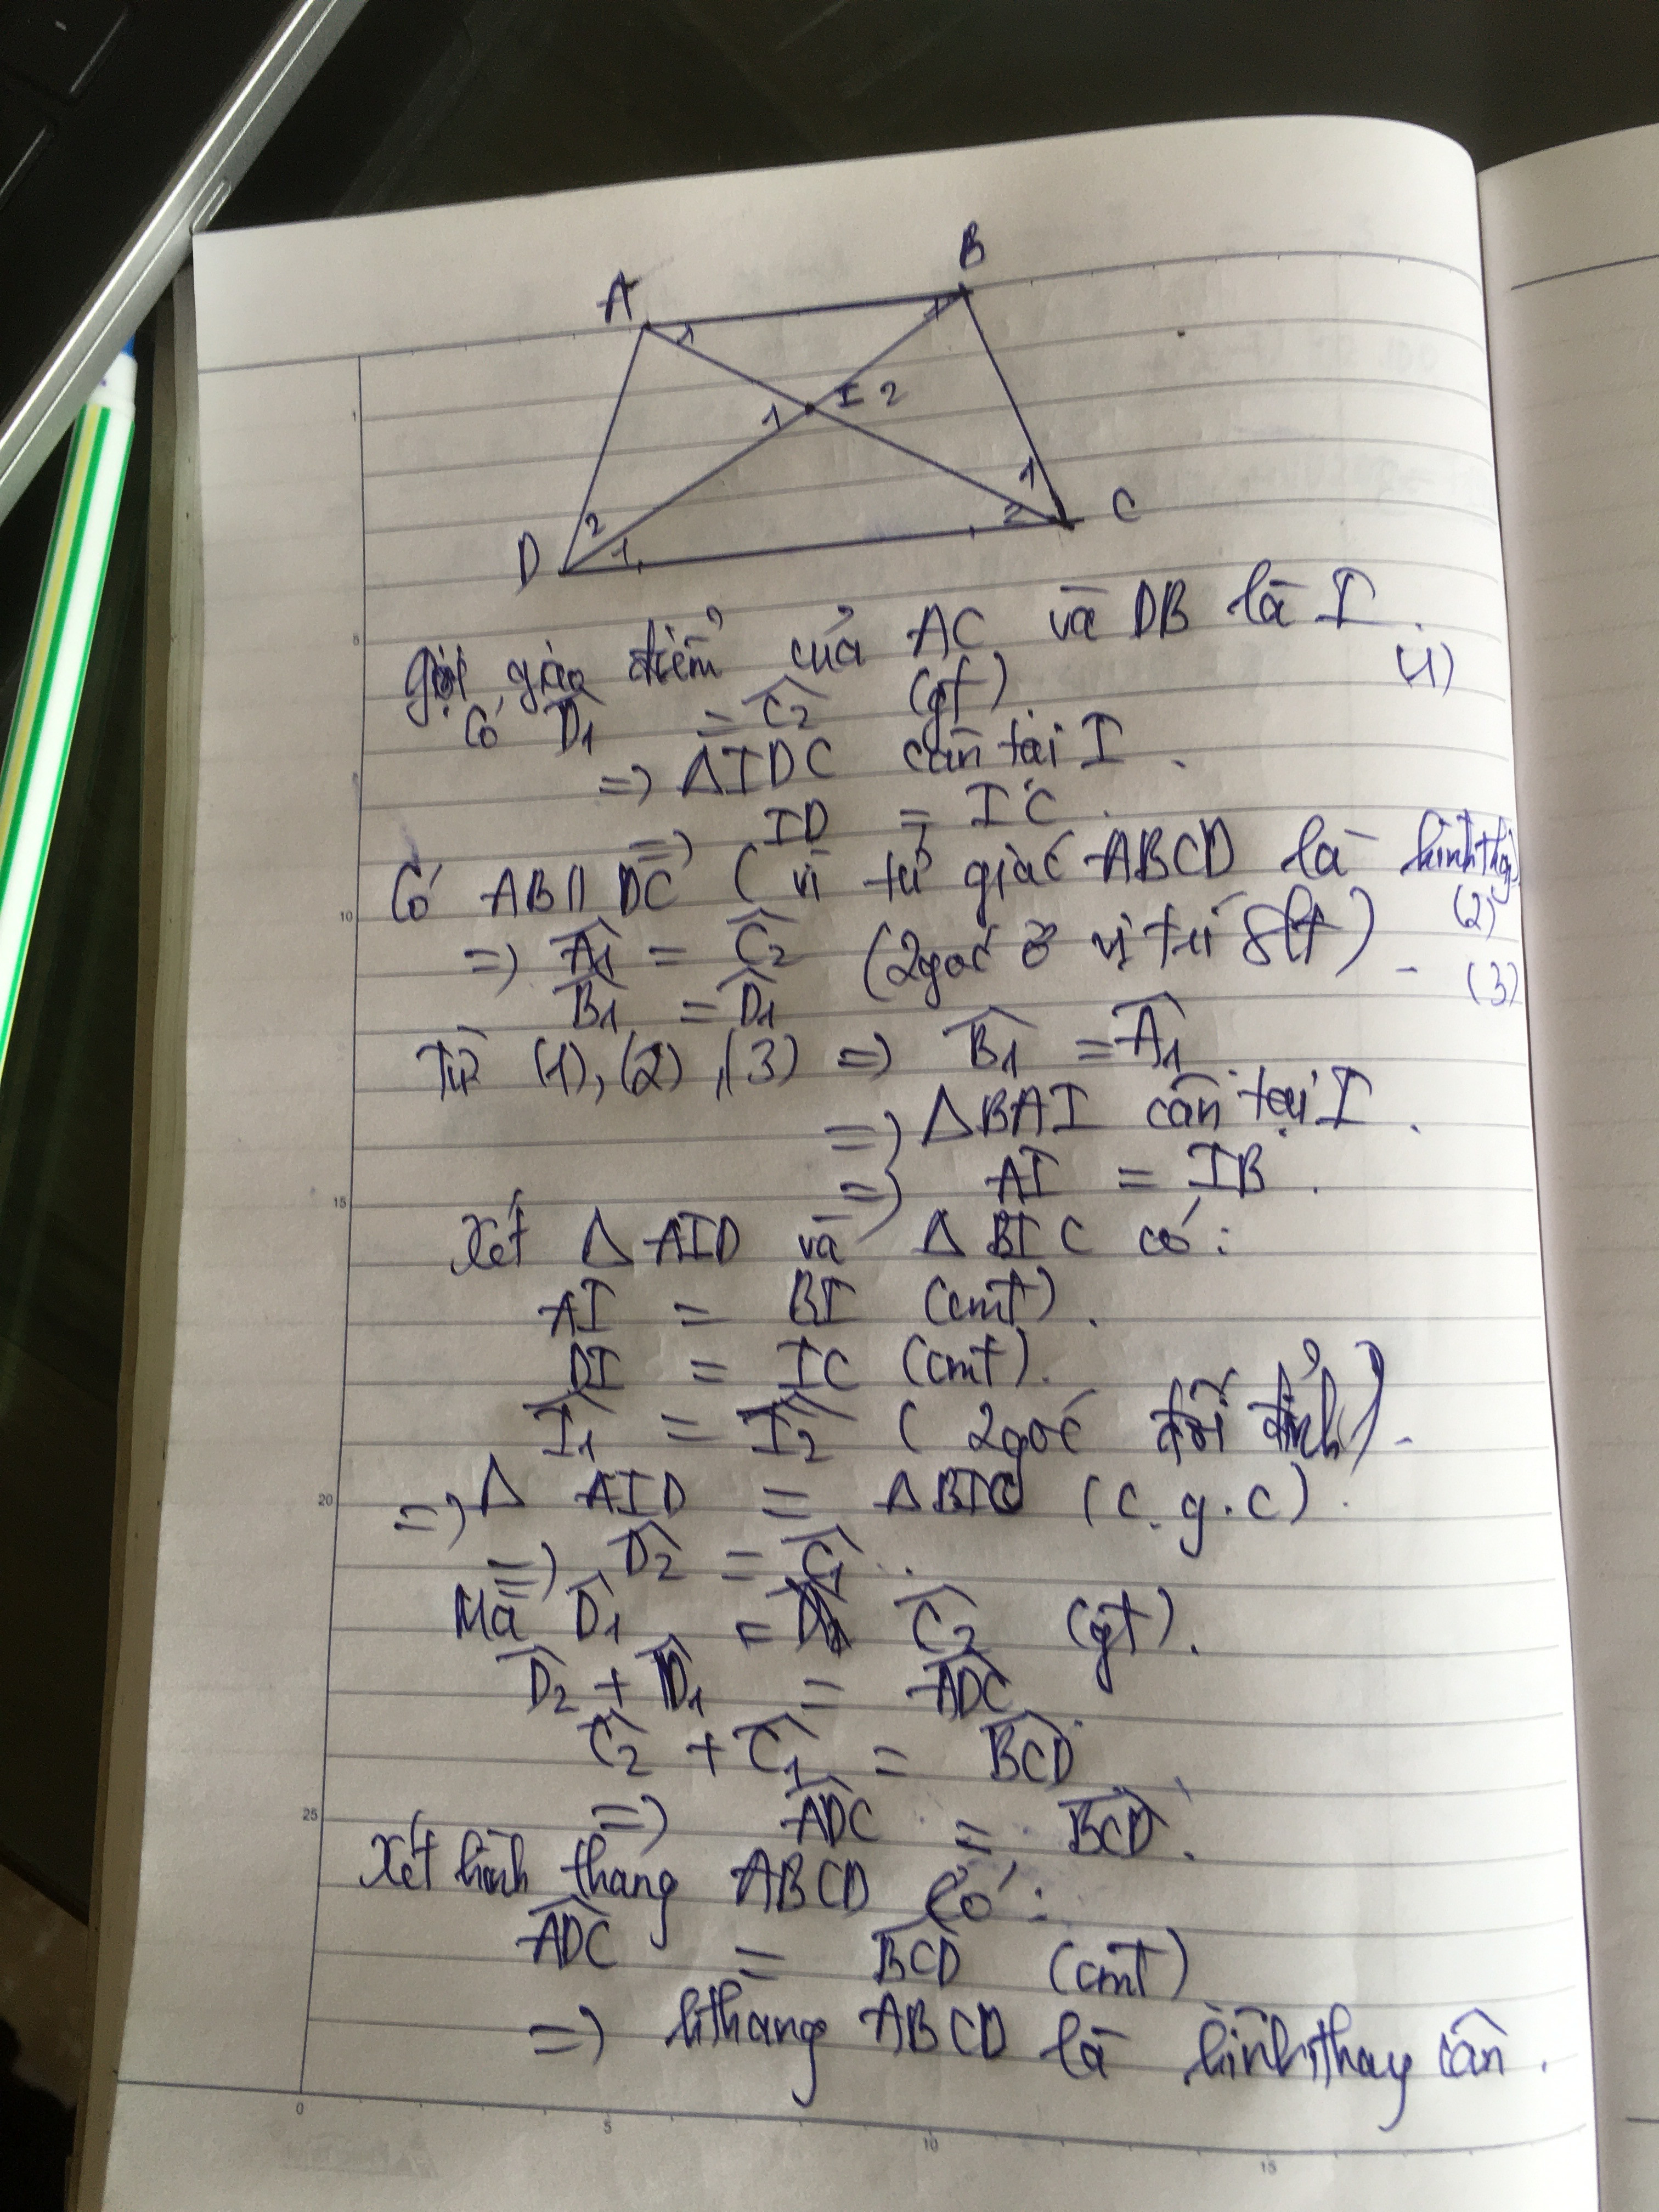 A
B
1
1
1
I 2
1
2
C
D
2
1
Gọi giao điểm của AC và DB là I.
Có D̂1 = Ĉ2 (gt) (1)
=> ΔIDC cân tại I.
=> ID = IC.
Có AB // DC (vì tứ giác ABCD là hình thg)
=> Â1 = Ĉ2 (2 góc ở vị trí slt). (2)
B̂1 = D̂1 (3)
Từ (1), (2), (3) => B̂1 = Â1
=> ΔBAI cân tại I.
=> AI = IB.
Xét Δ AID và Δ BIC có:
AI = BI (cmt).
DI = IC (cmt).
Î1 = Î2 (2 góc đối đỉnh).
=> Δ AID = Δ BIC (c.g.c).
=> D̂2 = Ĉ1.
Mà D̂1 = Ĉ2 (gt).
D̂2 + D̂1 = ADC^
Ĉ2 + Ĉ1 = BCD^
=> ADC^ = BCD^.
Xét hình thang ABCD có:
ADC^ = BCD^ (cmt)
=> hthang ABCD là hình thay cân.
0
5
10
15
1
5
10
15
20
25